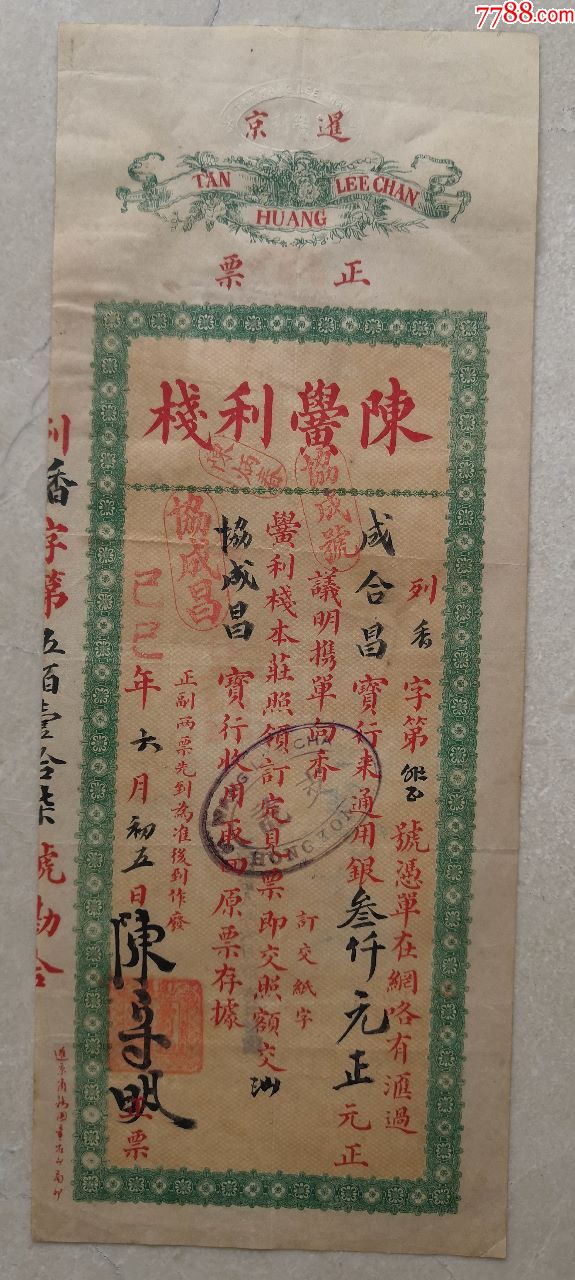 7788.com
暹京
TAN HUANG LEE CHAN
正票
陳黌利棧
列香字第 號憑單在網咯有滙過
成合昌寶行来通用銀叁仟元正元正
訂交紙字
議明携單向香
黌利棧本莊照領訂完見票即交照額交汕
協成昌寶行收用取回原票存據
正副两票先到為准後到作廢
己巳年六月初五日
陳守明
正票
協成號
協成昌
HONGKONG
列香字第五百壹拾柒號勘合